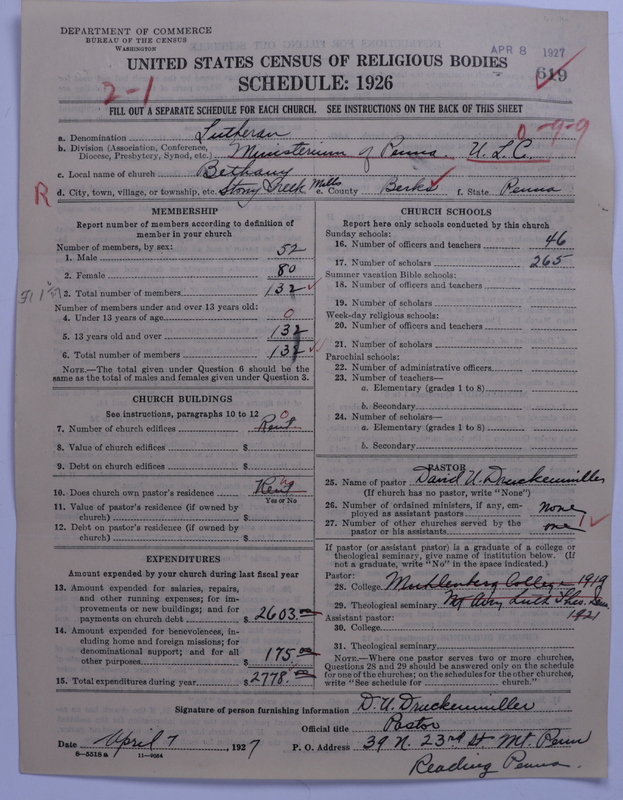 DEPARTMENT OF COMMERCE
BUREAU OF THE CENSUS
WASHINGTON
APR 8 1927
UNITED STATES CENSUS OF RELIGIOUS BODIES
619
SCHEDULE: 1926
2-1
FILL OUT A SEPARATE SCHEDULE FOR EACH CHURCH. SEE INSTRUCTIONS ON THE BACK OF THIS SHEET
a. Denomination Lutheran
0-9-9
b. Division (Association, Conference, Diocese, Presbytery, Synod, etc.) Ministerium of Penna. U. L. C.
c. Local name of church Bethany
R
d. City, town, village, or township, etc. Stony Creek Mills e. County Berks f. State Penna
MEMBERSHIP
Report number of members according to definition of
member in your church
Number of members, by sex:
1. Male 52
2. Female 80
3. Total number of members 132
Number of members under and over 13 years old:
4. Under 13 years of age 0
5. 13 years old and over 132
6. Total number of members 132
NOTE.—The total given under Question 6 should be the
same as the total of males and females given under Question 3.
CHURCH BUILDINGS
See instructions, paragraphs 10 to 12
0
7. Number of church edifices Rent
8. Value of church edifices $
9. Debt on church edifices $
10. Does church own pastor's residence Rent
Yes or No
11. Value of pastor's residence (if owned by
church) $
12. Debt on pastor's residence (if owned by
church) $
EXPENDITURES
Amount expended by your church during last fiscal year
13. Amount expended for salaries, repairs,
and other running expenses; for im-
provements or new buildings; and for
payments on church debt $2603.00
14. Amount expended for benevolences, in-
cluding home and foreign missions; for
denominational support; and for all
other purposes 175.00
15. Total expenditures during year $2778.00
CHURCH SCHOOLS
Report here only schools conducted by this church
Sunday schools:
16. Number of officers and teachers 46
17. Number of scholars 265
Summer vacation Bible schools:
18. Number of officers and teachers
19. Number of scholars
Week-day religious schools:
20. Number of officers and teachers
21. Number of scholars
Parochial schools:
22. Number of administrative officers
23. Number of teachers—
a. Elementary (grades 1 to 8)
b. Secondary
24. Number of scholars—
a. Elementary (grades 1 to 8)
b. Secondary
PASTOR
25. Name of pastor David U. Druckenmiller
(If church has no pastor, write "None")
26. Number of ordained ministers, if any, em-
ployed as assistant pastors none
27. Number of other churches served by the
pastor or his assistants one 1
If pastor (or assistant pastor) is a graduate of a college or
theological seminary, give name of institution below. (If
not a graduate, write "No" in the space indicated.)
Pastor:
28. College Muhlenberg College - 1919
29. Theological seminary Mt Airy Luth Theo. Sem.
1921
Assistant pastor:
30. College
31. Theological seminary
NOTE.—Where one pastor serves two or more churches,
Questions 28 and 29 should be answered only on the schedule
for one of the churches; on the schedules for the other churches,
write "See schedule for church."
Signature of person furnishing information D. U. Druckenmiller
Official title Pastor
Date April 7, 1927
P. O. Address 39 N. 23rd St Mt. Penn
Reading Penna.
8-5518a 11-9064